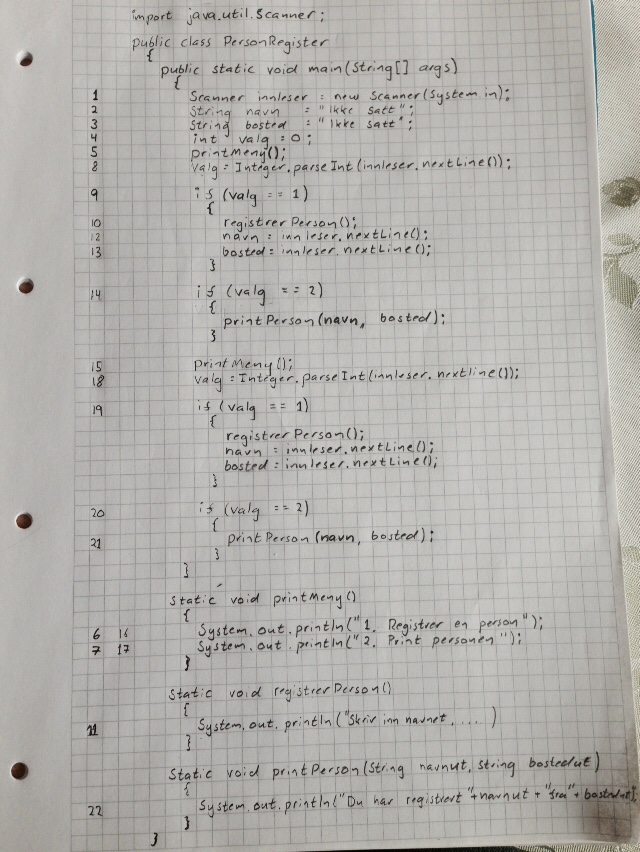 import java.util.Scanner;
public class PersonRegister
{
public static void main(String[] args)
{
1 Scanner innleser = new Scanner(System.in);
2 String navn = "Ikke satt";
3 String bosted = "Ikke satt";
4 int valg = 0;
5 printMeny();
8 valg = Integer.parseInt(innleser.nextLine());
9 if (valg == 1)
{
10 registrerPerson();
12 navn = innleser.nextLine();
13 bosted = innleser.nextLine();
}
14 if (valg == 2)
{
printPerson(navn, bosted);
}
15 printMeny();
18 valg = Integer.parseInt(innleser.nextline());
19 if (valg == 1)
{
registrerPerson();
navn = innleser.nextLine();
bosted = innleser.nextLine();
}
20 if (valg == 2)
{
21 printPerson(navn, bosted);
}
}
Static void printMeny()
{
6 16 System.out.println("1. Registrer en person");
7 17 System.out.println("2. Print personen");
}
Static void registrerPerson()
{
11 System.out.println("Skriv inn navnet, ... )
}
Static void printPerson(String navnut, String bostedut)
{
22 System.out.println("Du har registrert"+navnut + "fra"+ bostedut);
}
}